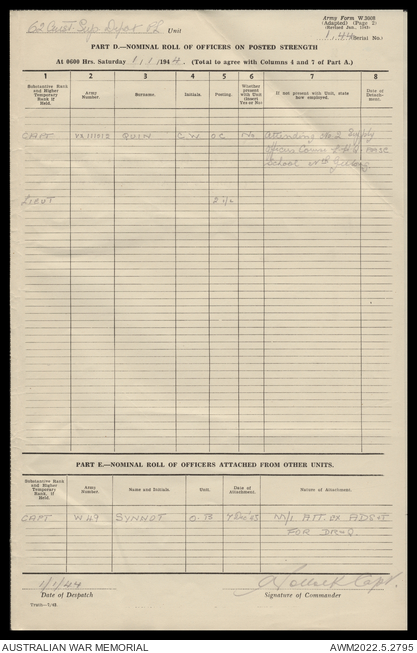 Army Form W.3008
(Adapted) (Page 2)
(Revised Jan., 1943)
62 Aust Sup Depot Pl Unit
1/44 (Serial No.)
PART D.—NOMINAL ROLL OF OFFICERS ON POSTED STRENGTH
At 0600 Hrs. Saturday 1/1/1944. (Total to agree with Columns 4 and 7 of Part A.)
1 2 3 4 5 6 7 8
Substantive Rank and Higher Temporary Rank if Held. Army Number. Surname. Initials. Posting. Whether present with Unit (insert Yes or No) If not present with Unit, state how employed. Date of Detachment.
CAPT QUIN C W OC No Attending No 2 Supply
School
LIEUT 2 i/c
PART E.—NOMINAL ROLL OF OFFICERS ATTACHED FROM OTHER UNITS.
Substantive Rank and Higher Temporary Rank, if Held. Army Number. Name and Initials. Unit. Date of Attachment. Nature of Attachment.
CAPT SYNNOT ATT.
FOR
1/1/44 Capt.
Date of Despatch Signature of Commander
AUSTRALIAN WAR MEMORIAL AWM2022.5.2795